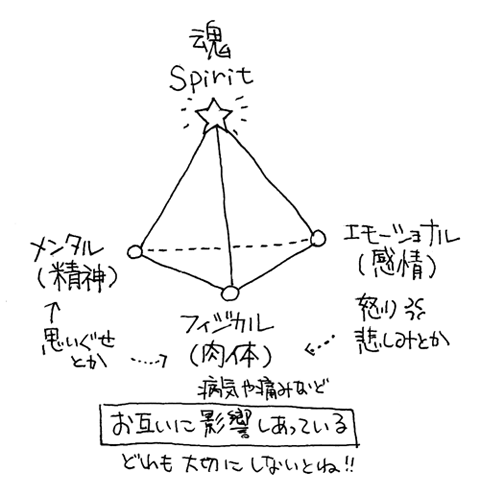 魂
Spirit
メンタル
(精神)
エモーショナル
(感情)
↑
思いぐせ
とか
フィジカル
(肉体)
病気や痛みなど
怒り
悲しみとか
お互いに影響しあっている
どれも大切にしないとね!!